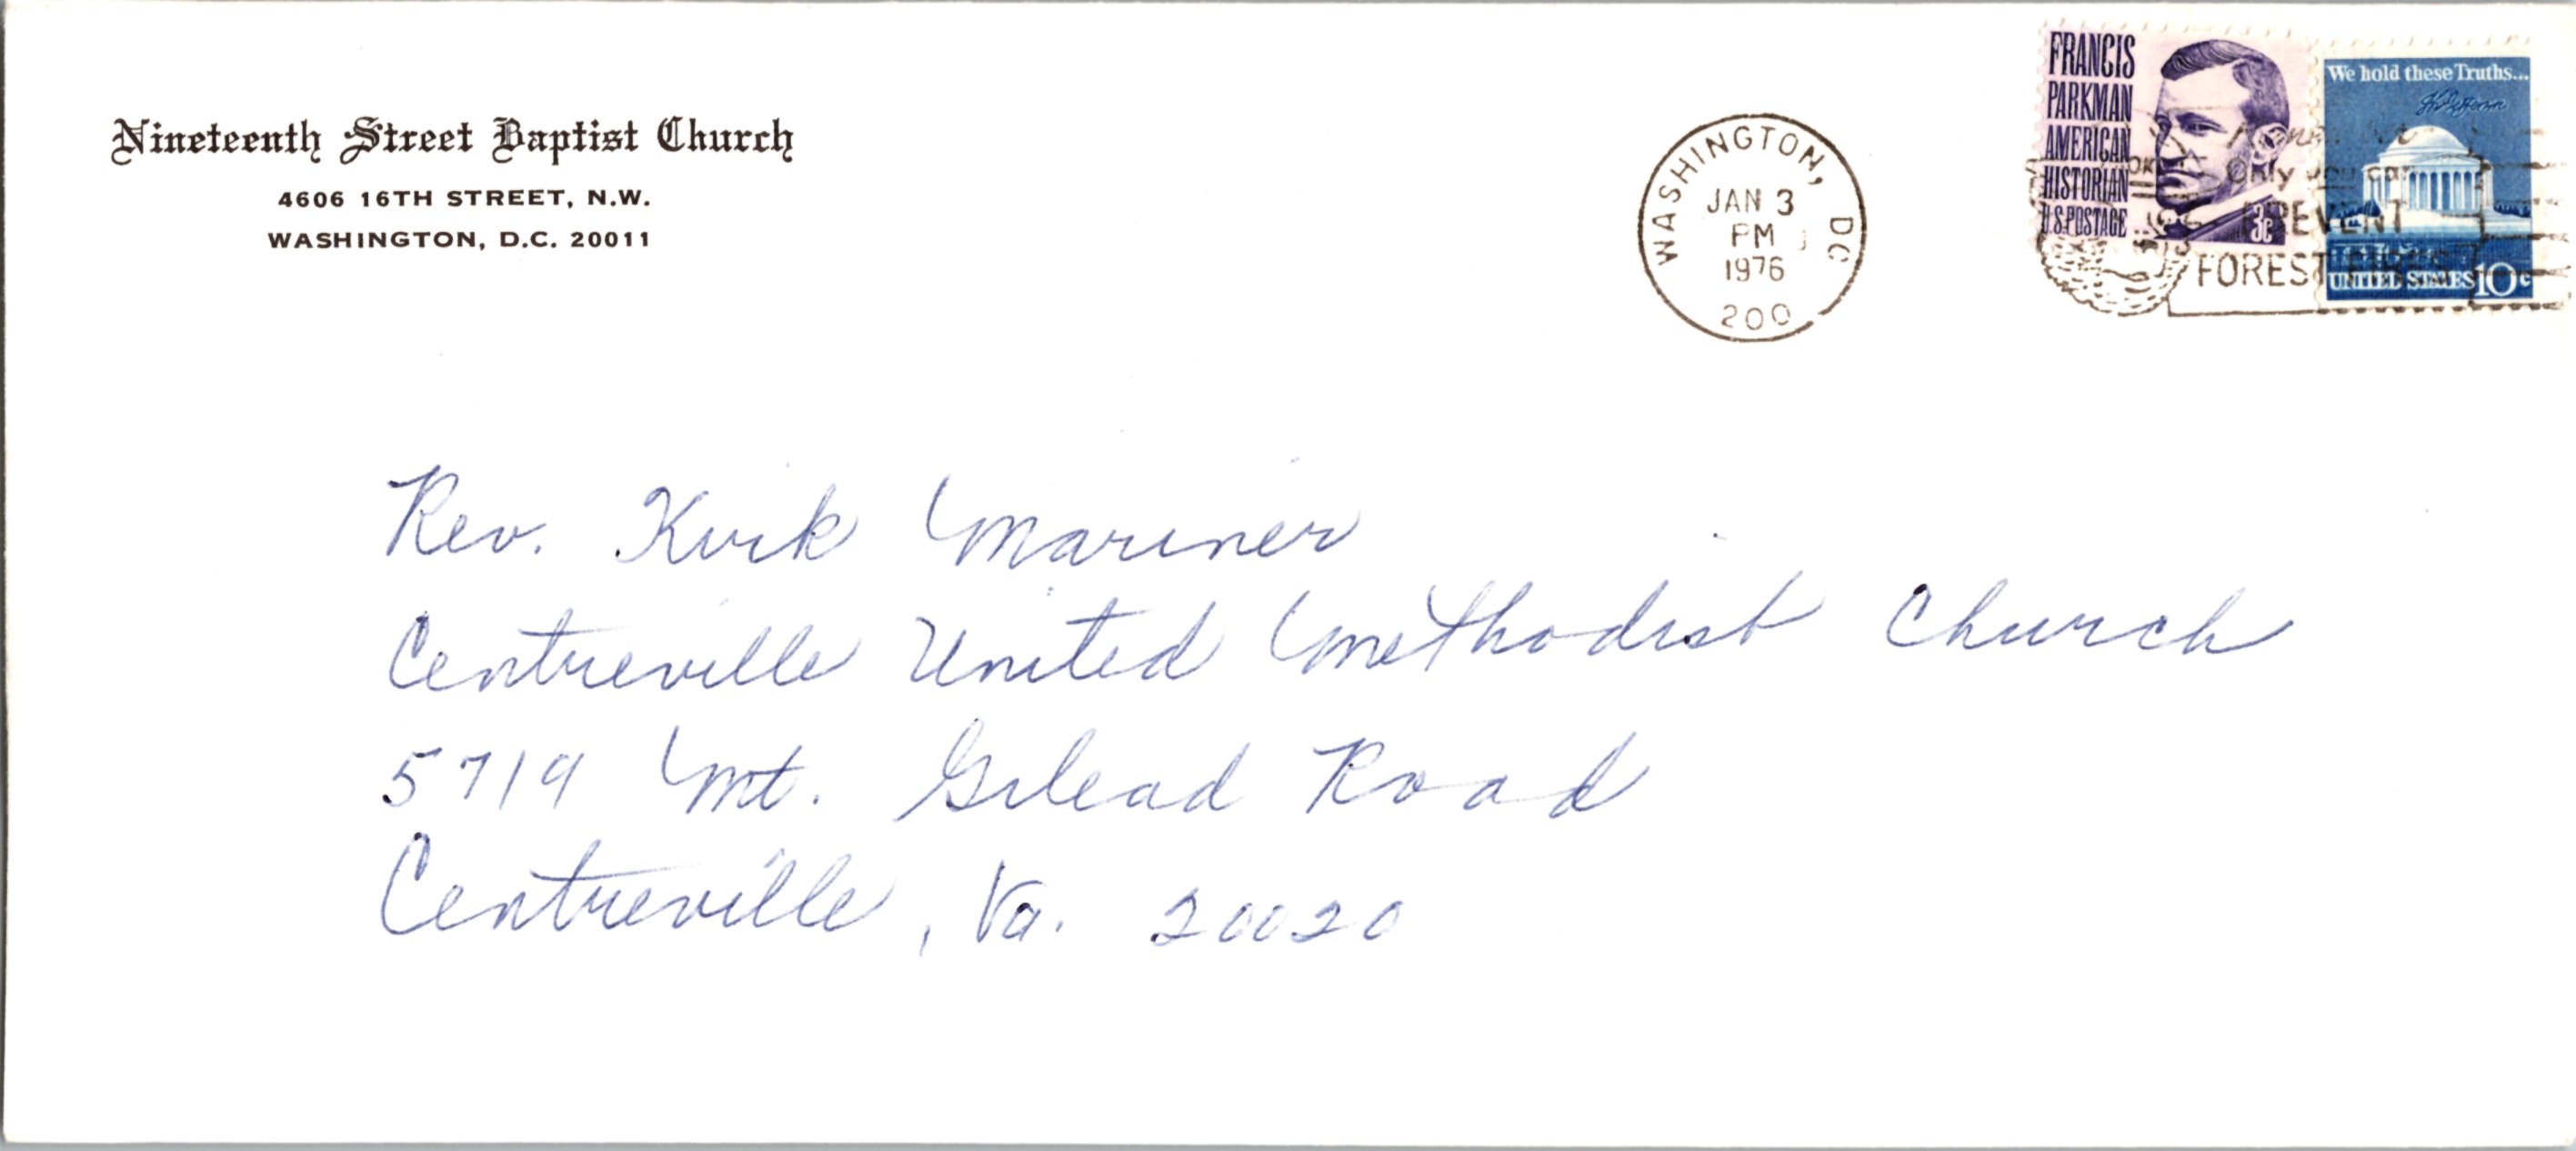 Nineteenth Street Baptist Church
4606 16TH STREET, N.W.
WASHINGTON, D.C. 20011
WASHINGTON, DC
JAN 3
PM
1976
200
FRANCIS
PARKMAN
AMERICAN
HISTORIAN
U.S. POSTAGE
3c
We hold these Truths...
Th Jefferson
UNITED STATES 10c
Only you can
PREVENT
FOREST FIRES
Rev. Kirk Mariner
Centreville United Methodist Church
5719 Mt. Gilead Road
Centreville, Va. 20020